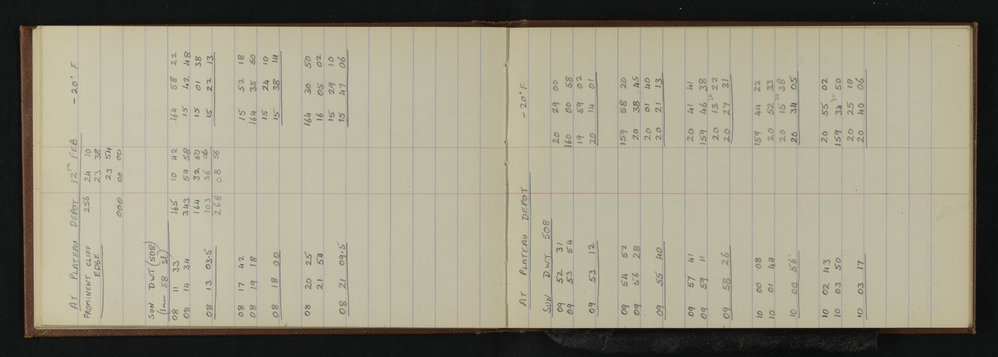 AT PLATEAU DEPOT 12TH FEB - 20° F
PROMINENT CLIFF 256 24 10
EDGE 23 38
23 54
000 00 00
SUN DWT (508)
08 11 33 165 10 42 164 58 22
08 14 34 343 54 58 15 42 48
164 32 50 15 01 38
08 13 03.5 103 56 06 15 22 13
268 08 56
08 17 42 15 52 18
08 19 18 164 35 50
15 24 10
08 18 00 15 38 14
08 20 25 164 30 50
21 54 16 05 02
15 29 10
08 21 09.5 15 47 06
AT PLATEAU DEPOT - 20° F
SUN DWT 508
09 52 31 20 29 00
09 53 54 160 00 58
19 59 02
09 53 12 20 14 01
09 54 52 159 58 20
09 56 28 20 38 45
20 01 40
09 55 40 20 21 13
09 57 41 20 41 41
09 59 11 159 46 38
20 13 22
09 58 26 20 27 31
10 00 08 159 44 22
10 01 44 20 52 33
20 15 38
10 00 56 20 34 05
10 02 43 20 55 02
10 03 50 159 34 50
20 25 10
10 03 17 20 40 06